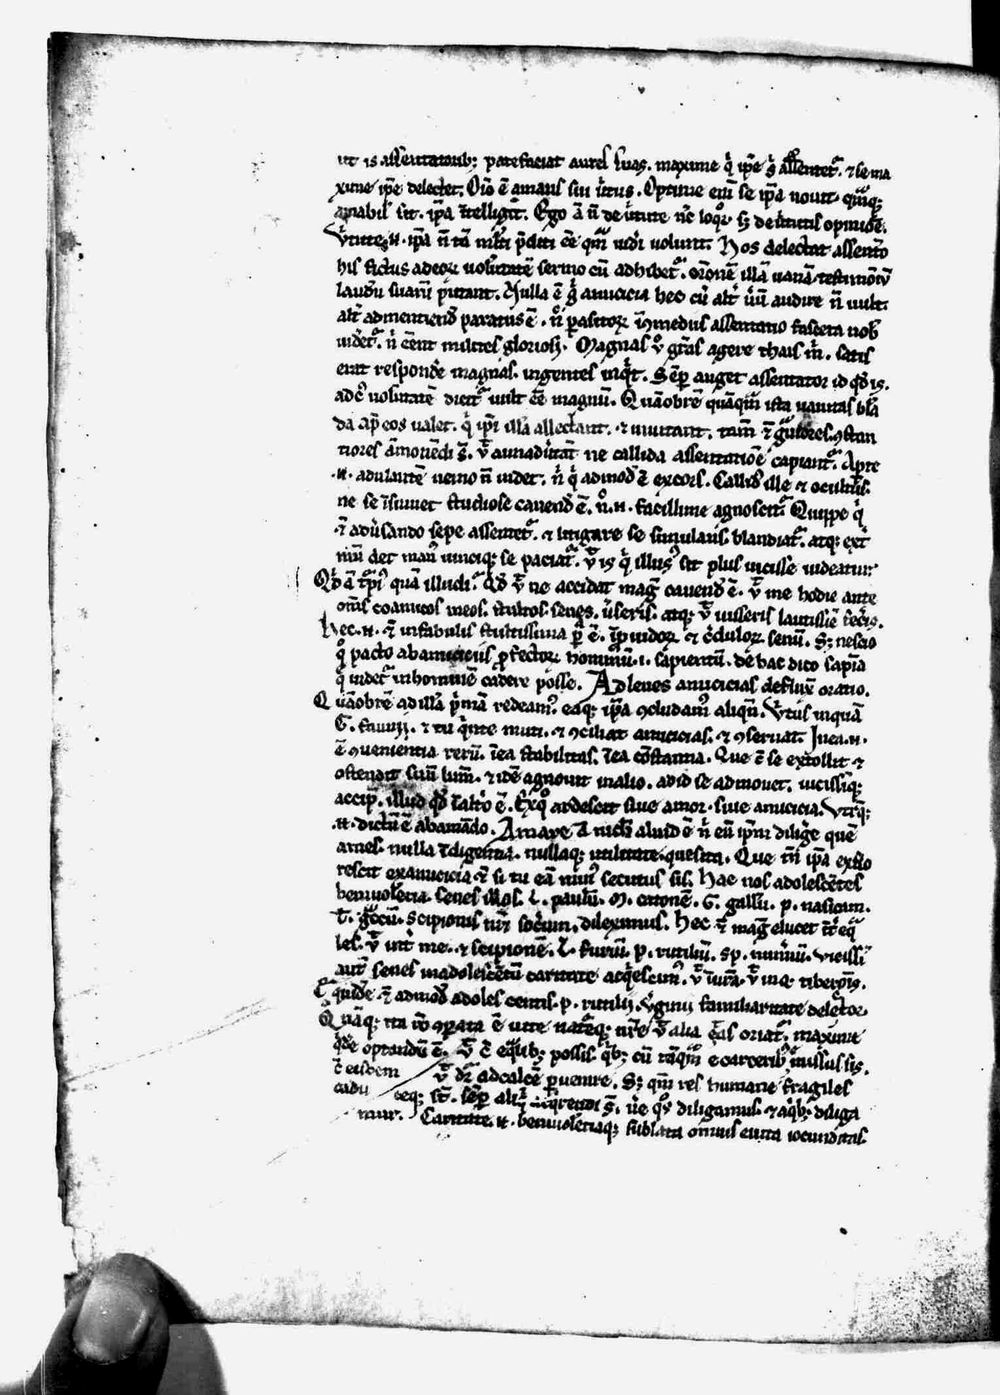 ut is assentatorib; patefaciat aurel suas. maxime q̓ ip̄e s̓ assentet᷑. ⁊ se ma
xime ip̄e delectet. Oīo ē amans sui ůtus. Optime eiī se ip̄a nouit. q̄mq;
amabil sit. ip̄a ītelligit. Ego ā ñ de ůtute nc̄ loq᷑. s; de ůtutis opinioē.
Ůtute .n. ip̄a ñ tā ml̓ti p̄diti ēe qm̄ uidi uolunt. Hos delectat assent̄o
his fictus ad eor uolūtatē sermo cū adhibet᷑. oronē illā uanā testimōiū
laudū suarū putant. Nulla ē g̓ amicicia hec cū alt̓ uū audire ñ uult.
alt̓ ad mentiend paratus ē. n̓ parasitor in comediis assentatio faceta nob
uidet᷑. n̓ eēnt milites gloriosi. Magnas ů gr̄as agere thais m̓. satis
erat respondē magnas. ingentes inq̓t. Sēp auget assentator id qd is.
ad c̓ uolūtatē dicit᷑ uult ēe magnū. Quāobrē quāq̄m ista uanitas blā
da ap̄ eos ualet. q̓ ip̄i illā allectant. ⁊ inuitant. tam̄ ⁊ grauiores 9stan
tiores āmonēdi s̄. ut aīaduertāt ne callida assentatiōe capiant᷑. Aperte
.n. adulantē nemo ñ uidet. n̓ q̓ admod ē excors. Callid ille ⁊ occultus.
ne se īsinuet studiose cauend ē. n̓ .n. facillime agnoscit᷑. Quippe q̓
⁊ aduersando sepe assentet᷑. ⁊ litigare se simulans. blandiat᷑. atq; ext̓
mū det man᷑ uinciq; se paciat᷑. ut is q̓ illus᷑ sit plus uicisse uideatur
Qd ā t᷑pi᷑ quā illudi. Qd ut ne accidat mag᷑ cauend ē. ut me hodie ante
om̄s comicos meos. stultos. senes. ůseris. atq; ut iusseris lautissīe
Hec .n. ⁊ in fabulis stultissima p ē. īp̄uidor ⁊ c̓dulor senū. S; nescio
q̓ pacto ab amiciciis p̄fector hominū .i. sapientū. de hac dico sapīa
q̓ uidet᷑ in hominē cadere posse. Ad leues amicicias defluxit oratio.
Quāobrē ad illā p̓mā redeam᷑. eaq; ip̄a 9cludam᷑ aliqn̄. Ůtus inquā
G. fanni. ⁊ tu q̓nte muti. ⁊ 9ciliat amicicias. ⁊ 9seruat. In ea .n.
ē 9uenientia rerū. ī ea stabilitas. ī ea cōstantia. Que c̄ se extollit ⁊
ostendit suū lum̄. ⁊ idē agnouit in alio. ad id se admouet. uicissiq;
accip̄. illud qd ī alt̓o ē. Ex q᷑ ardescit siue amor. siue amicicia. Utrq;
.n. dictū ē ab amādo. Amare ā nich̄ aliud ē n̓ eū ip̄m dilig̓e quē
ames. nulla īdigentia. nullaq; utilitate quesita. Que tn̄ ip̄a efflo
rescit ex amicicia ⁊ si tu eā min᷑ secutus sis. Hac nos adolescētes
beniuolētia. senes illos. L. paulū. M. catonē. G. gallū. P. nasicam.
T. gcc̄ū. Scipionis nr̄i socerum. dileximus. Hec ⁊ mag᷑ elucet int̓ eq᷑
les. ut int̓ me. ⁊ scipionē. L. furiū. P. rutiliū. Sp. mumiū. Vicissi
aut̄ senes in adolescētū caritate acq̓escim᷑. ut in ur̄a. ut in q. tiberonis.
Equidē ⁊ admod adolescentis. P. rutilii. ůginii familiaritate delector.
Quāq; ita ip̄arata ē uite nat᷑eq; nr̄e ut alia etas oriat᷑. maxime
q̓de optandū ē. ut c̄ eq᷑lib; possis. q᷑b; cū tāq̄m e carcerib᷑ missus sis.
c̄ eisdem ut dr̄ ad calcē puenire. S; qm̄ res humane fragiles
cadu ceq; st̄. sēp aliq̓ anq̓rendi s̄. ut quos diligamus. ⁊ a q᷑b; diliga
mur. Caritate .n. beniuolētiaq; sublata omnis e uita iocunditas.